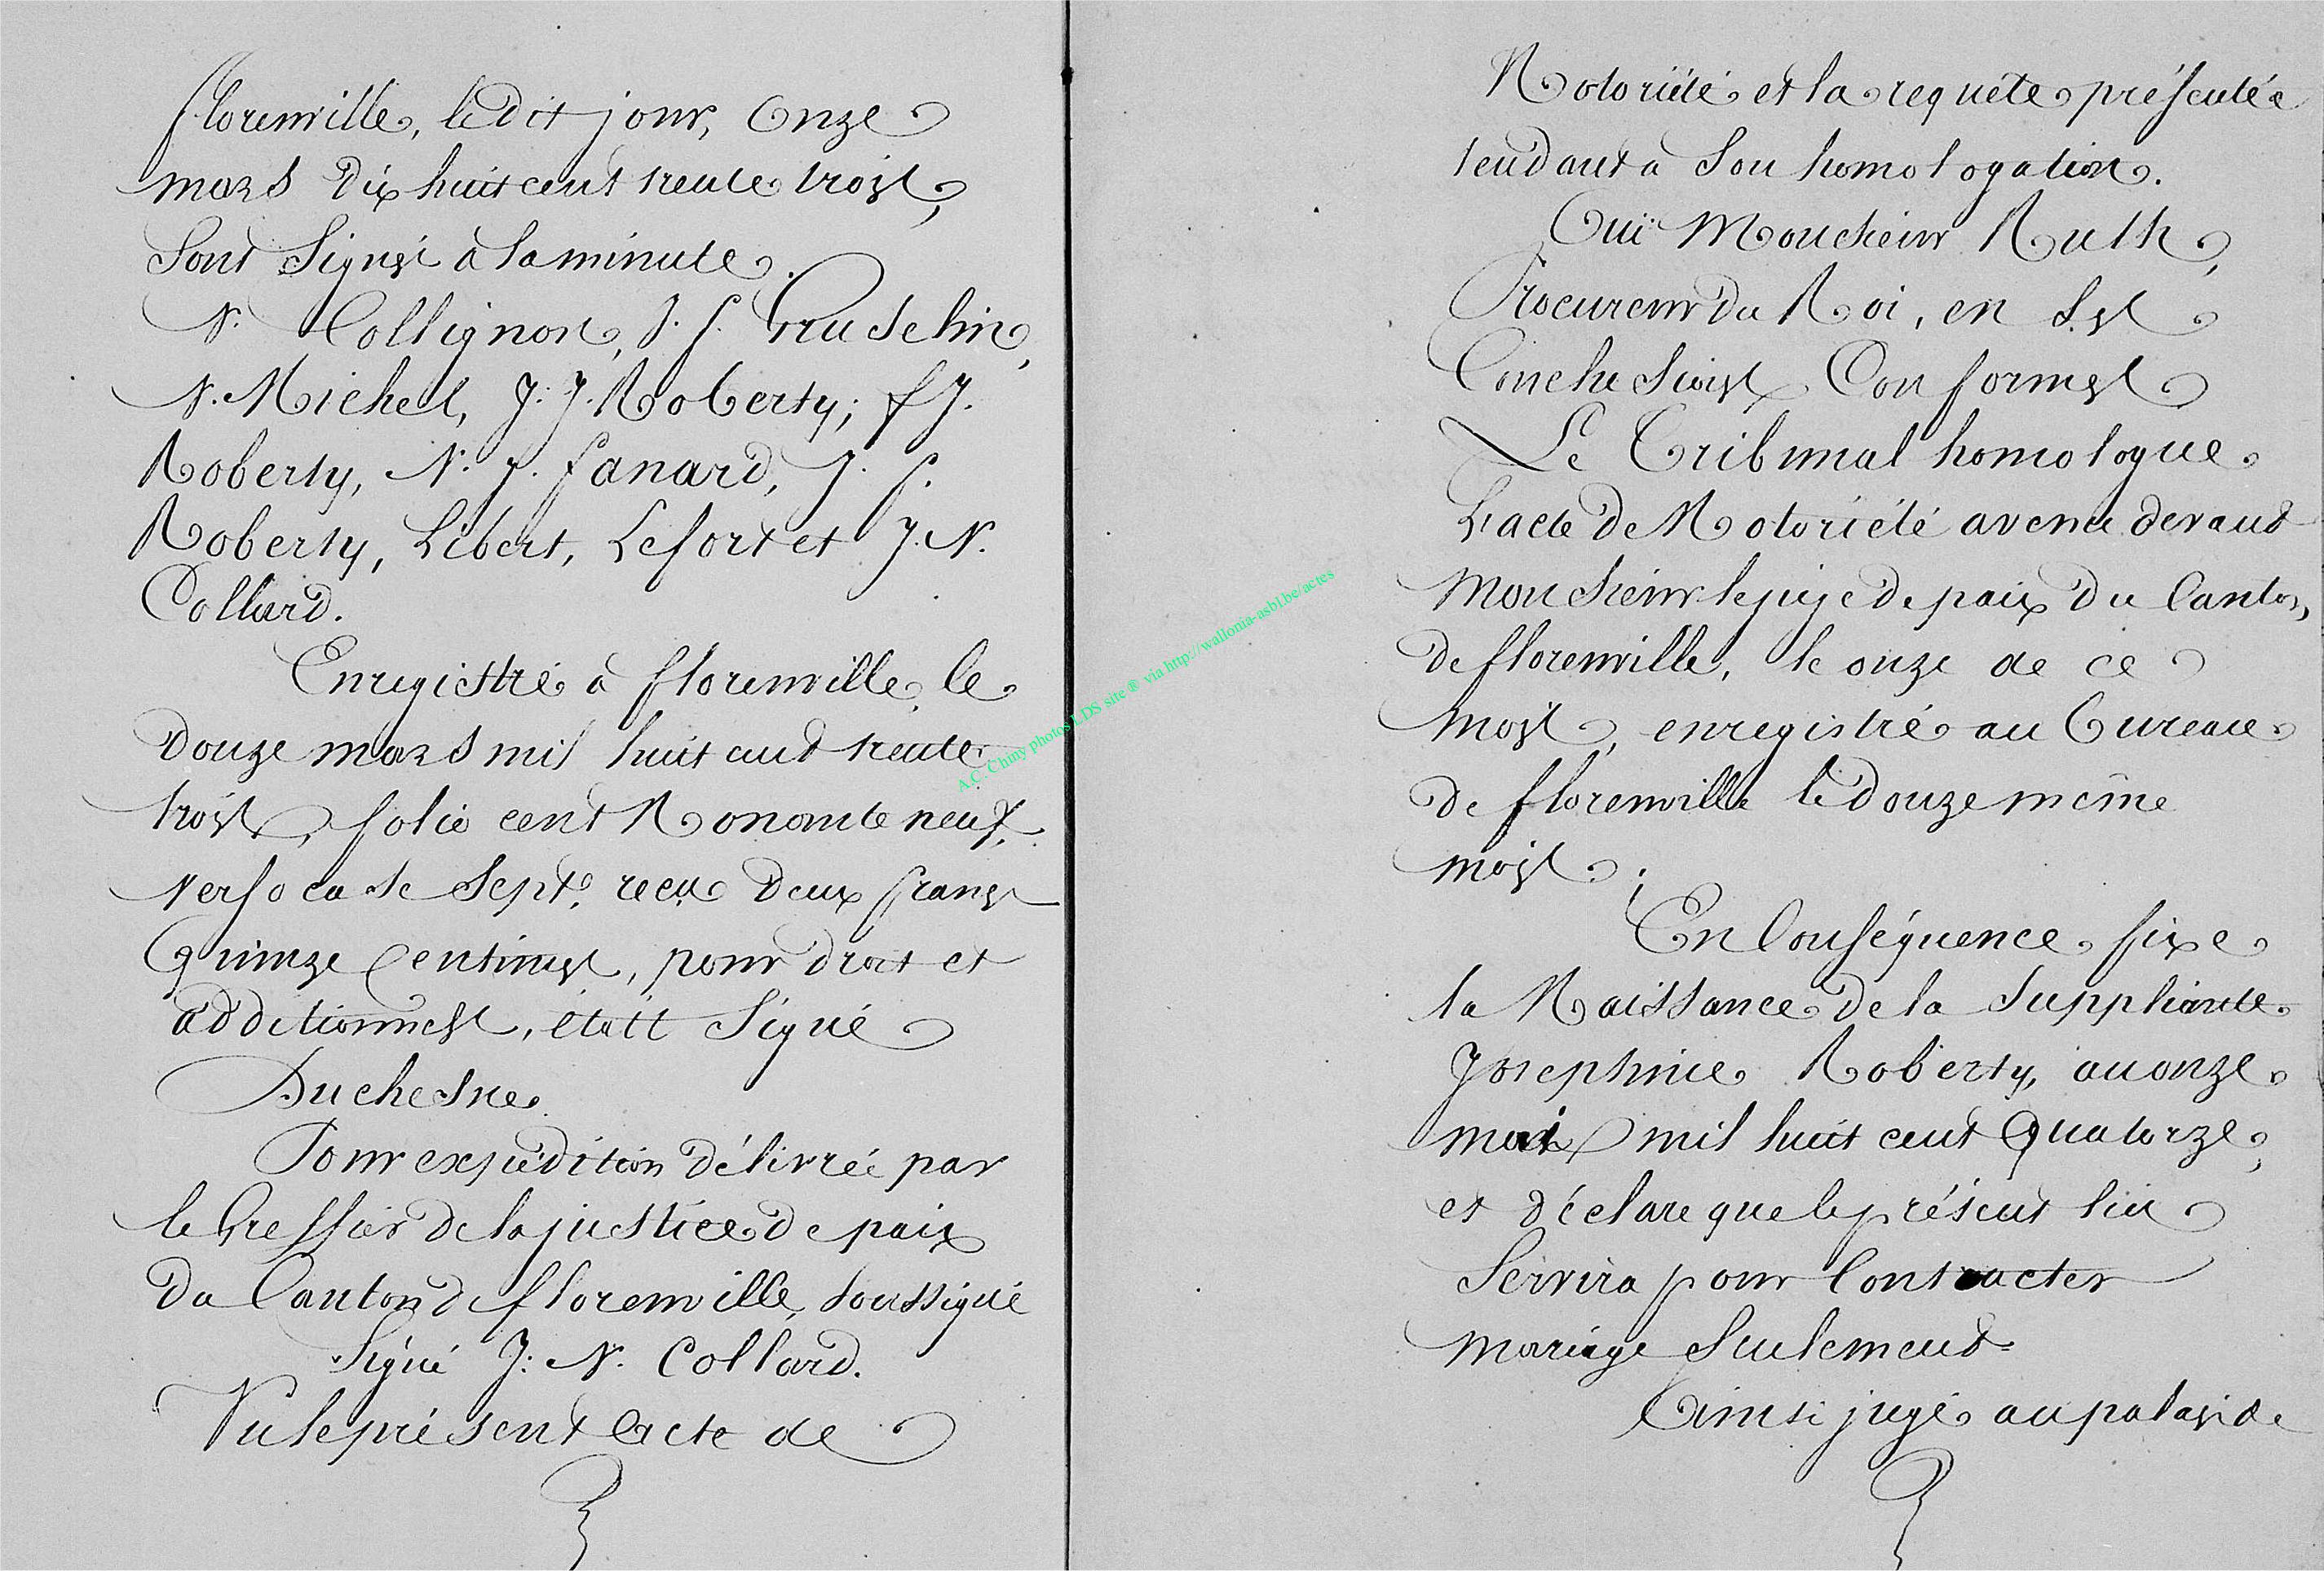 florenville, ledit jour, Onze
mars dix huit cent trente trois,
Sont Signés à la minute.
N. Collignon, J. f. Gruselin,
N. Michel, J: J. Roberty; f J.
Roberty, N. J. fanard, J. f.
Roberty, Libert, Lefort et J. N.
Collard.
Enregistré à florenville, le
douze mars mil huit cent trente
trois, folio cent Nonante neuf,
verso case Sept, reçu deux francs
Quinze Centimes, pour droit et
additionnels, était Signé
Duchesne
Pour expédition délivrée par
le Greffier de la justice de paix
du Canton de florenville, soussigné
Signé J: N. Collard.
Vu le présent Acte de
Notoriété et la requête présentée
tendant à Son homologation.
Ouï Monsieur Ruth,
Procureur du Roi, en Ses
Conclusions Conformes
Le Tribunal homologue
L'acte de Notoriété avenu devant
Monsieur le juge de paix du Canton
de florenville, le onze de ce
mois, enregistré au Bureau
de florenville le douze même
mois;
En Conséquence, fixe
la Naissance de la Suppliante
Josephine Roberty, au onze
mai mil huit cent Quatorze,
et déclare que le présent lui
Servira pour Contracter
mariage Seulement
Ainsi jugé au palais de
A.C. Chiny photos LDS site ® via http://wallonia-asbl.be/actes